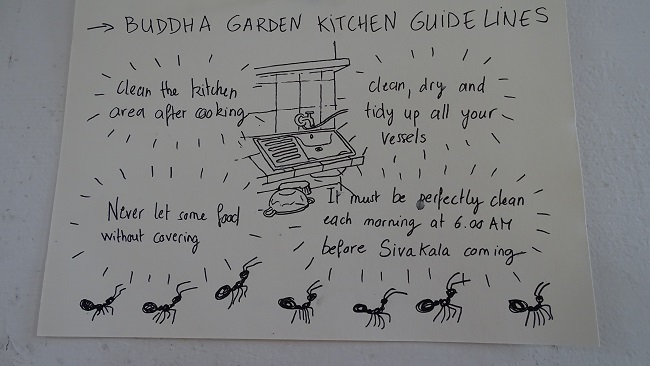 → BUDDHA GARDEN KITCHEN GUIDELINES
Clean the kitchen
area after cooking
clean, dry and
tidy up all your
vessels
Never let some food
without covering
It must be perfectly clean
each morning at 6.00 AM
before Sivakala coming